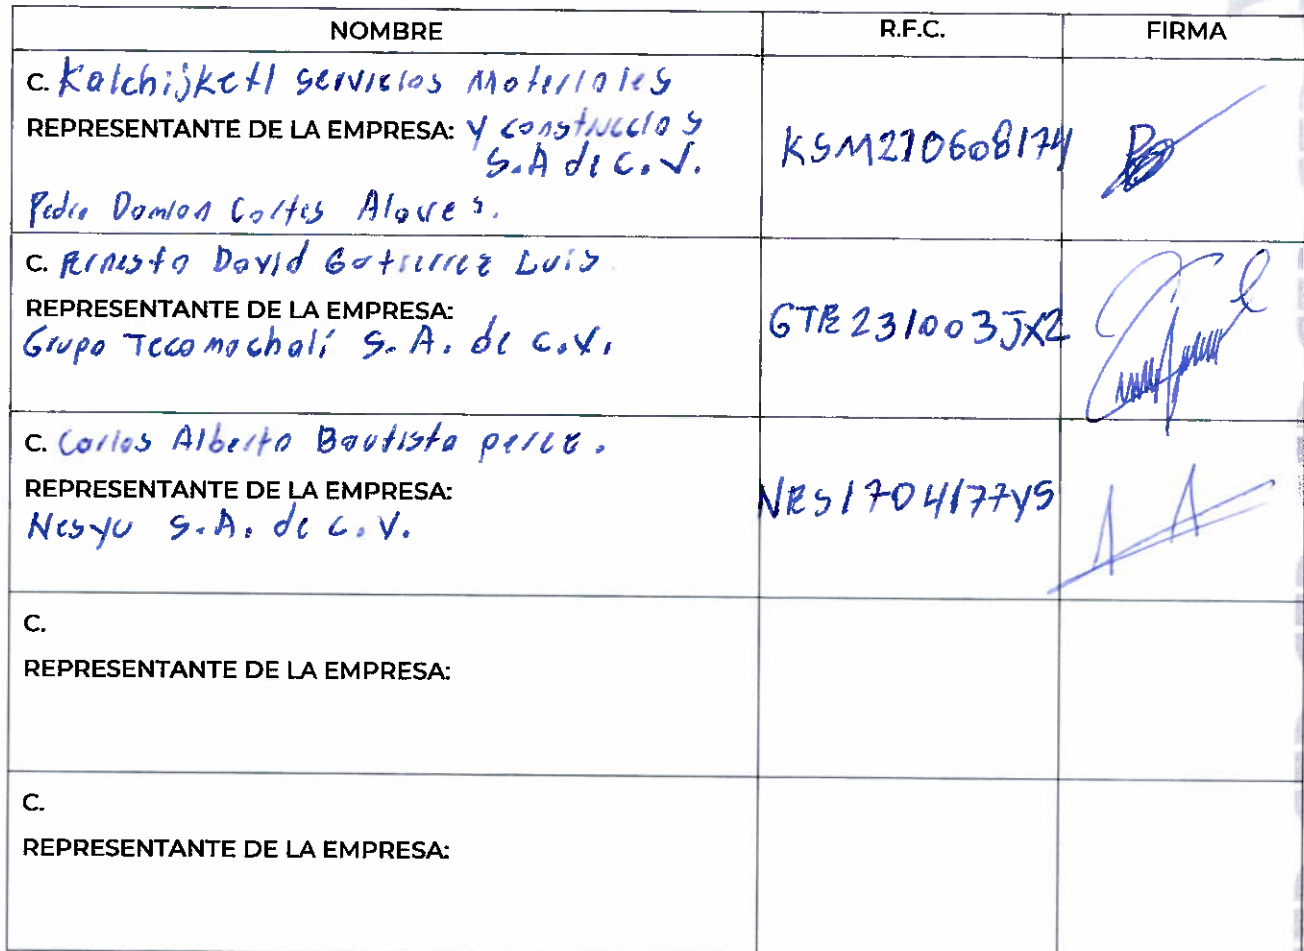 NOMBRE R.F.C. FIRMA
C. Kalchijketl servicios Materiales
REPRESENTANTE DE LA EMPRESA: y construccios
S.A de C.V. KSM210608174
Pedro Damian Cortes
C. Ernesto David Gutierrez Luis
REPRESENTANTE DE LA EMPRESA:
Grupo Tecomachalí S.A. de C.V. GTE231003JX2
C. Carlos Alberto Bautista perez.
REPRESENTANTE DE LA EMPRESA:
Nesyu S.A. de C.V. NES1704177Y5
C.
REPRESENTANTE DE LA EMPRESA:
C.
REPRESENTANTE DE LA EMPRESA: